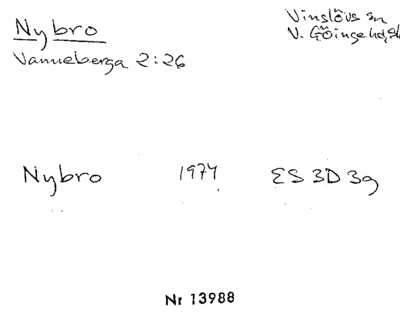 Nybro
Vinslövs sn
V. Göinge hd, Sk
Vanneberga 2:26
Nybro 1974 ES 3D 3g
Nr 13988